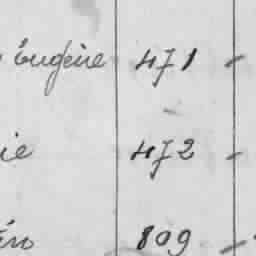 Eugène 471 -
ie 472 -
809 -